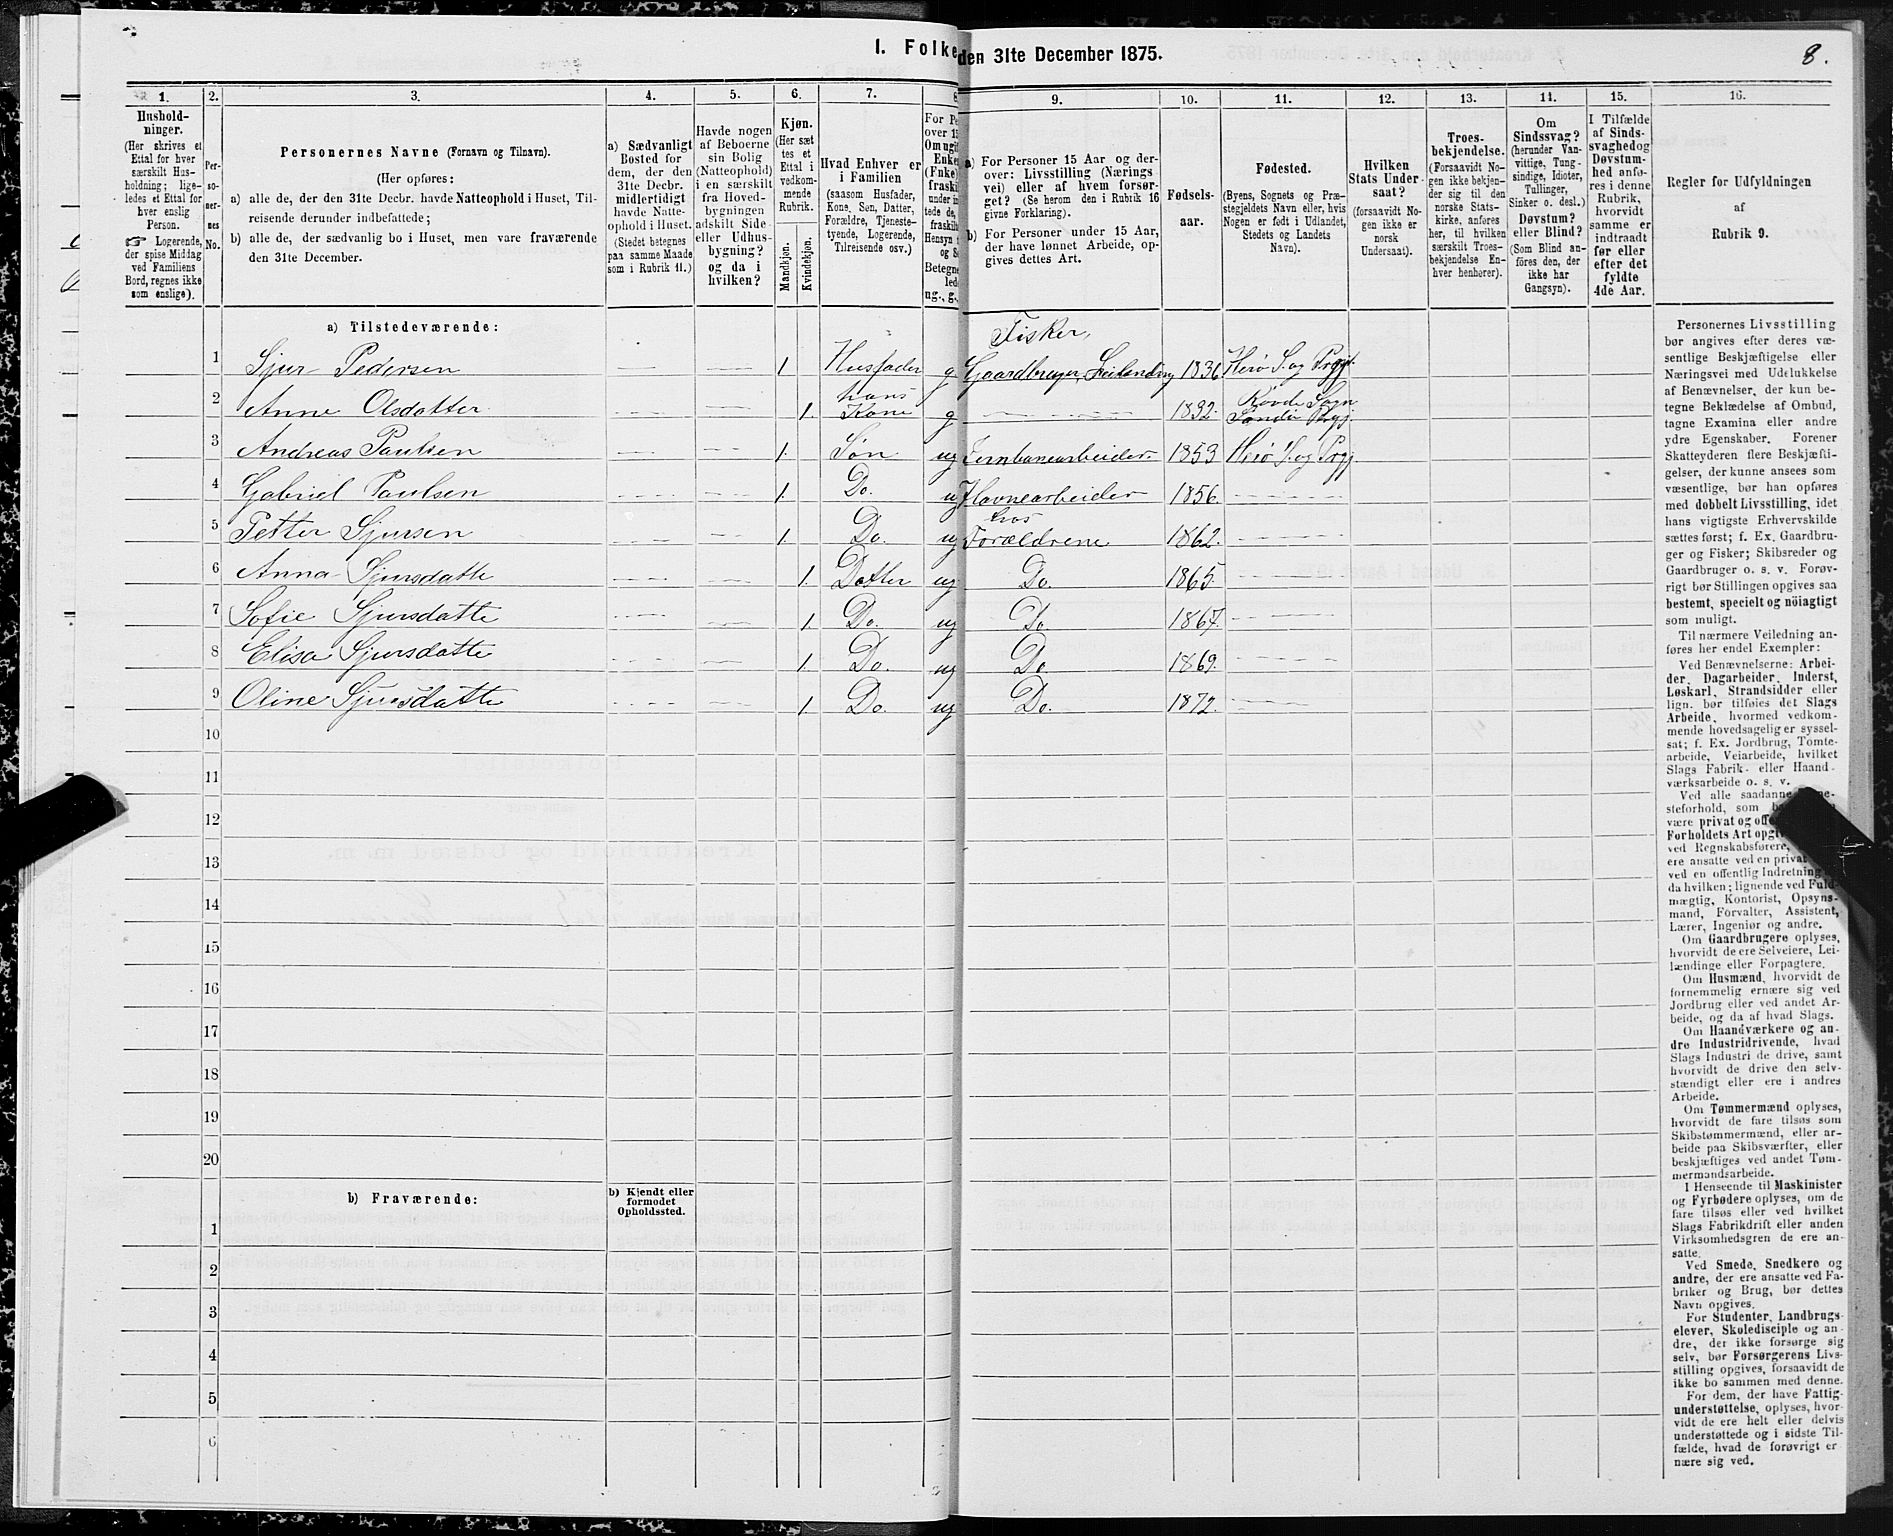 1. Folke den 31te December 1875.
8.
1.
2.
3.
4.
5.
6.
7.
8
9.
10.
11.
12.
13.
14.
15.
16.
Hushold-
ninger.
(Her skrives et
Ettal for hver
særskilt Hus-
holdning; lige-
ledes et Ettal for
hver enslig
Person.
☞ Logerende,
der spise Middag
ved Familiens
Bord, regnes ikke
som enslige).
Per-
so-
ner-
nes
No.
Personernes Navne (Fornavn og Tilnavn).
(Her opføres:
a) alle de, der den 31te Decbr. havde Natteophold i Huset, Til-
reisende derunder indbefattede;
b) alle de, der sædvanlig bo i Huset, men vare fraværende
den 31te December.
a) Sædvanligt
Bosted for
dem, der den
31te Decbr.
midlertidigt
havde Natte-
ophold i Huset.
(Stedet betegnes
paa samme Maade
som i Rubrik 11.)
Havde nogen
af Beboerne
sin Bolig
(Natteophold)
i en særskilt
fra Hoved-
bygningen
adskilt Side-
eller Udhus-
bygning?
og da i
hvilken?
Kjøn.
(Her sæt
tes et
Ettal i
vedkom-
mende
Rubrik.
Mandkjøn.
Kvindekjøn.
Hvad Enhver er
i Familien
(saasom Husfader,
Kone, Søn, Datter,
Forældre, Tjeneste-
tyende, Logerende,
Tilreisende osv.)
For Pe
over 15
Om ugif
Enke
(Enke)
fraski
under in
tede de,
fraskilt
Hensyn
og S
Betegne
led
ug., g.,
a) For Personer 15 Aar og der-
over: Livsstilling (Nærings
vei) eller af hvem forsør-
get? (Se herom den i Rubrik 16
givne Forklaring).
b) For Personer under 15 Aar,
der have lønnet Arbeide, op-
gives dettes Art.
Fødsels-
aar.
Fødested.
(Byens, Sognets og Præ-
stegjeldets Navn eller, hvis
Nogen er født i Udlandet,
Stedets og Landets
Navn).
Hvilken
Stats Under-
saat?
(forsaavidt No-
gen ikke er
norsk
Undersaat).
Troes-
bekjendelse.
(Forsaavidt No-
gen ikke bekjen-
der sig til den
norske Stats-
kirke, anføres
her, til hvilken
særskilt Troes-
bekjendelse En-
hver henhører).
Om
Sindssvag?
(herunder Van-
vittige, Tung-
sindige, Idioter,
Tullinger,
Sinker o. desl.)
Døvstum?
eller Blind?
(Som Blind an-
føres den, der
ikke har
Gangsyn).
I Tilfælde
af Sinds-
svaghed og
Døvstum-
hed anfø-
res i denne
Rubrik,
hvorvidt
samme er
indtraadt
før eller
efter det
fyldte
4de Aar.
Regler for Udfyldningen
af
Rubrik 9.
a) Tilstedeværende:
Fisker,
1 Sjur Pedersen 1. Husfader g. Gaardbruger, Leilænding 1836 Herø S. og Prgj.
2 Anne Olsdatter 1. hans Kone g 1832. Rovde Sogn Sandø Prgj.
3 Andreas Paulsen 1. Søn ug Jernbanearbeider. 1853 Herø S. og Prgj.
4 Gabriel Paulsen 1. Do. ug Havnearbeider 1856.
5 Petter Sjursen 1. Do. ug hos Forældrene 1862.
6 Anna Sjursdatte 1. Datter ug Do. 1865.
7 Sofie Sjursdatte 1. Do. ug Do. 1867.
8 Elisa Sjursdatte 1. Do. ug Do. 1869.
9 Oline Sjursdatte 1. Do. ug Do. 1872.
10
11
12
13
14
15
16
17
18
19
20
b) Fraværende:
b) Kjendt eller
formodet
Opholdssted.
1
2
3
4
5
6
Personernes Livsstilling
bør angives efter deres væ-
sentlige Beskjæftigelse eller
Næringsvei med Udelukkelse
af Benævnelser, der kun be-
tegne Beklædelse af Ombud,
tagne Examina eller andre
ydre Egenskaber. Forener
Skatteyderen flere Beskjæfti-
gelser, der kunne ansees som
væsentlige, bør han opføres
med dobbelt Livsstilling, idet
hans vigtigste Erhvervskilde
sættes først; f. Ex. Gaardbru-
ger og Fisker; Skibsreder og
Gaardbruger o. s. v. Forøv-
rigt bør Stillingen opgives saa
bestemt, specielt og nöiagtigt
som muligt.
Til nærmere Veiledning an-
føres her endel Exempler:
Ved Benævnelserne: Arbei-
der, Dagarbeider, Inderst,
Løskarl, Strandsidder eller
lign. bør tilføies det Slags
Arbeide, hvormed vedkom-
mende hovedsagelig er syssel-
sat; f. Ex. Jordbrug, Tomte-
arbeide, Veiarbeide, hvilket
Slags Fabrik- eller Haand-
værksarbeide o. s. v.
Ved alle saadanne
steforhold, som
være privat og
Forholdets Art
ved Regnskabsførere,
ere ansatte ved en privat
ved en offentlig Indretning
da hvilken; lignende ved Fuld-
mægtig, Kontorist, Opsyns-
mand, Forvalter, Assistent,
Lærer, Ingeniør og andre.
Om Gaardbrugere oplyses,
hvorvidt de ere Selveiere, Lei-
lændinge eller Forpagtere.
Om Husmænd, hvorvidt de
fornemmelig ernære sig ved
Jordbrug eller ved andet Ar-
beide, og da af hvad Slags.
Om Haandværkere og an-
dre Industridrivende, hvad
Slags Industri de drive, samt
hvorvidt de drive den selv-
stændigt eller ere i andres
Arbeide.
Om Tømmermænd oplyses,
hvorvidt de fare tilsøs som
Skibstømmermænd, eller ar-
beide paa Skibsværfter, eller
beskjæftiges ved andet Tøm-
mermandsarbeide.
I Henseende til Maskinister
og Fyrbødere oplyses, om de
fare tilsøs eller ved hvilket
Slags Fabrikdrift eller anden
Virksomhedsgren de ere an-
satte.
Ved Smede, Snedkere og
andre, der ere ansatte ved Fa-
briker og Brug, bør dettes
Navn opgives.
For Studenter, Landbrugs-
elever, Skoledisciple og an-
dre, der ikke forsørge sig
selv, bør Forsørgerens Livs-
stilling opgives, forsaavidt de
ikke bo sammen med denne.
For dem, der have Fattig-
understøttelse, oplyses, hvor-
vidt de ere helt eller delvis
understøttede og i sidste Til-
fælde, hvad de forøvrigt er
nære sig ved.